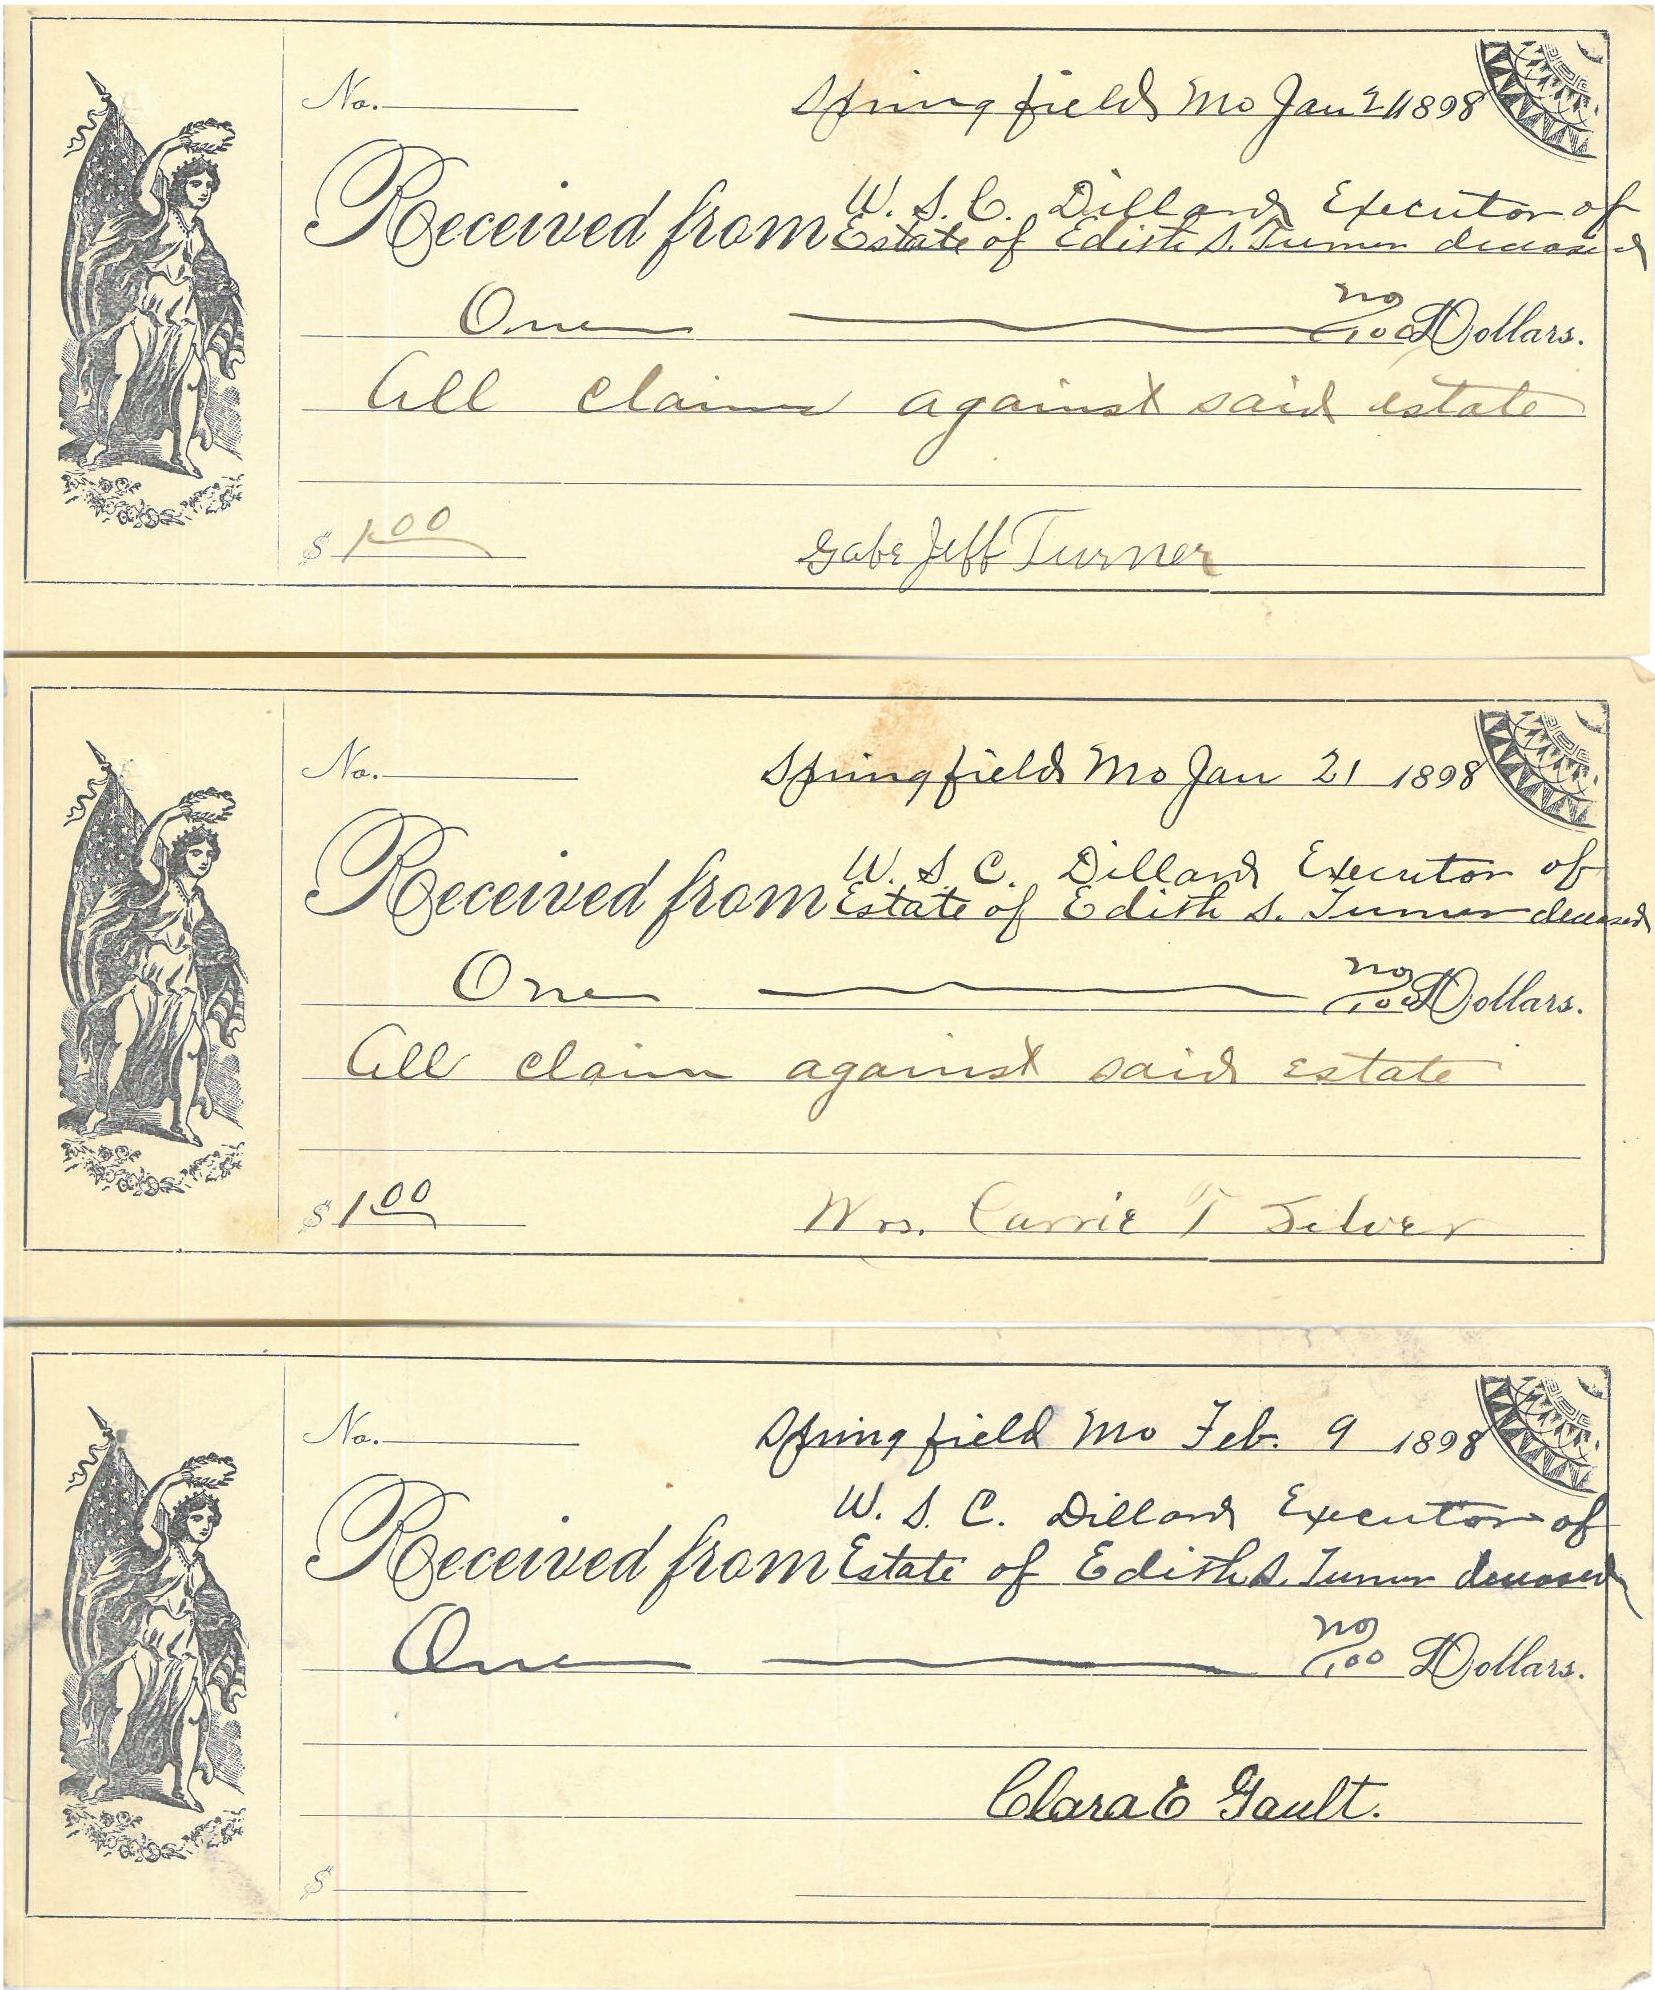 No.
Springfield Mo Jan 21 1898
W. S. C. Dillard Executor of
Received from Estate of Edith S. Turner deceased
One no/100 Dollars.
All claim against said estate
$ 1.00
Gabe Jeff Turner
No.
Springfield Mo Jan 21 1898
W. S. C. Dillard Executor of
Received from Estate of Edith S. Turner deceased
One no/100 Dollars.
All claim against said estate
$ 1.00
Mrs. Carrie T Silver
No.
Springfield Mo Feb. 9 1898
W. S. C. Dillard Executor of
Received from Estate of Edith S. Turner deceased
One no/100 Dollars.
Clara E Gault.
$